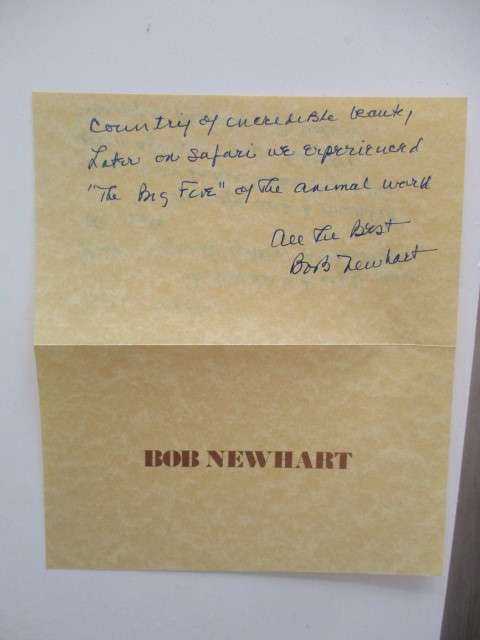 Country of incredible beauty,
Later on Safari we experienced
"The Big Five" of the animal world
All the Best
Bob Newhart
BOB NEWHART